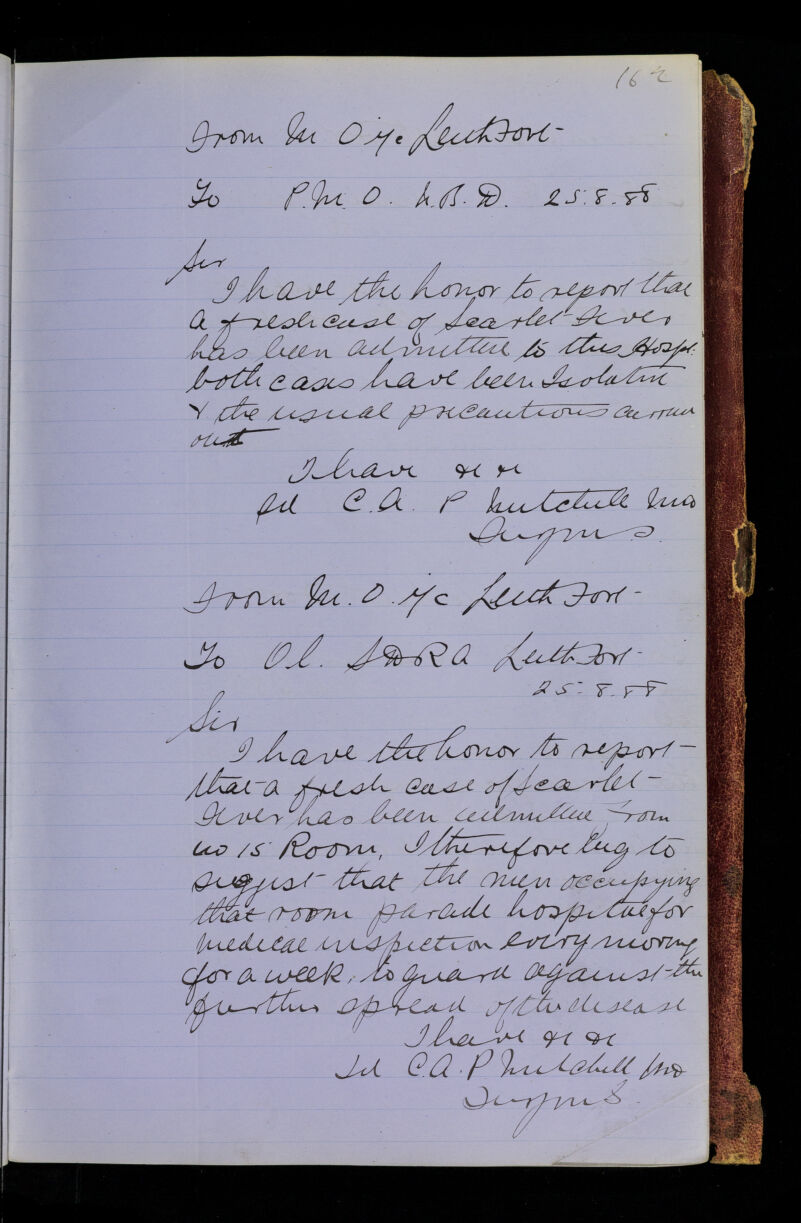 162
From M O i/c Leith Fort
To P. M. O. N. B. D. 25.8.88
Sir
I have the honor to report that
a fresh case of Scarlet Fever
has been admitted to this Hospl.
both cases have been Isolated
& the usual precautions carried
out
I have &c &c
Sd C. A. P Mitchell MD
Surgn S.
From M. O. i/c Leith Fort
To OC. SDRA Leith Fort
25.8.88
Sir
I have the honor to report
that a fresh case of Scarlet
Fever has been admitted from
no 15 Room, I therefore beg to
sugjest that the men occupying
that room parade hospital for
medical inspection every morng
for a week, to guard against the
further spread of the disease
I have &c &c
Sd C. A. P Mitchell MD
Surgn S.